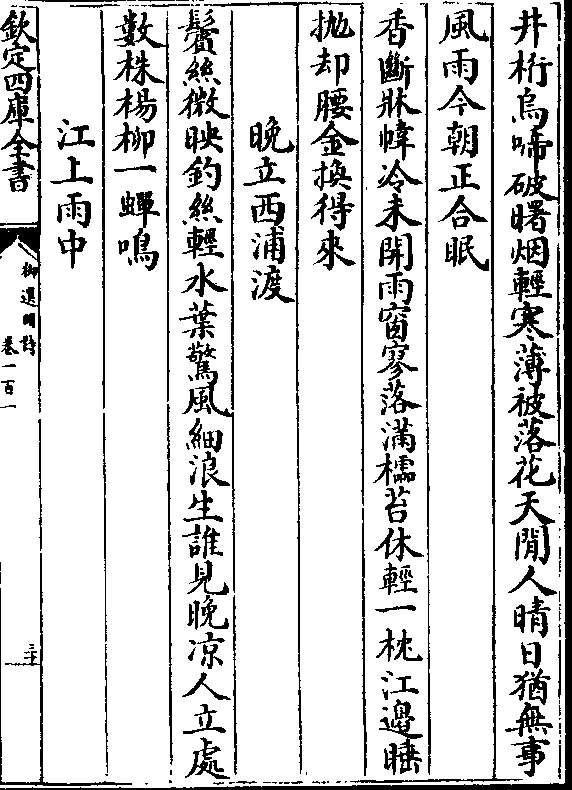 井桁烏啼破曙烟輕寒薄被落花天閒人晴日猶無事
風雨今朝正合眠
香斷牀幃冷未開雨窗寥落滿欞苔休輕一枕江邊睡
拋却腰金換得來
晚立西浦渡
鬢絲微映釣絲輕水葉驚風細浪生誰見晚凉人立處
數株楊柳一蟬鳴
江上雨中
欽定四庫全書
御選明詩
卷一百一